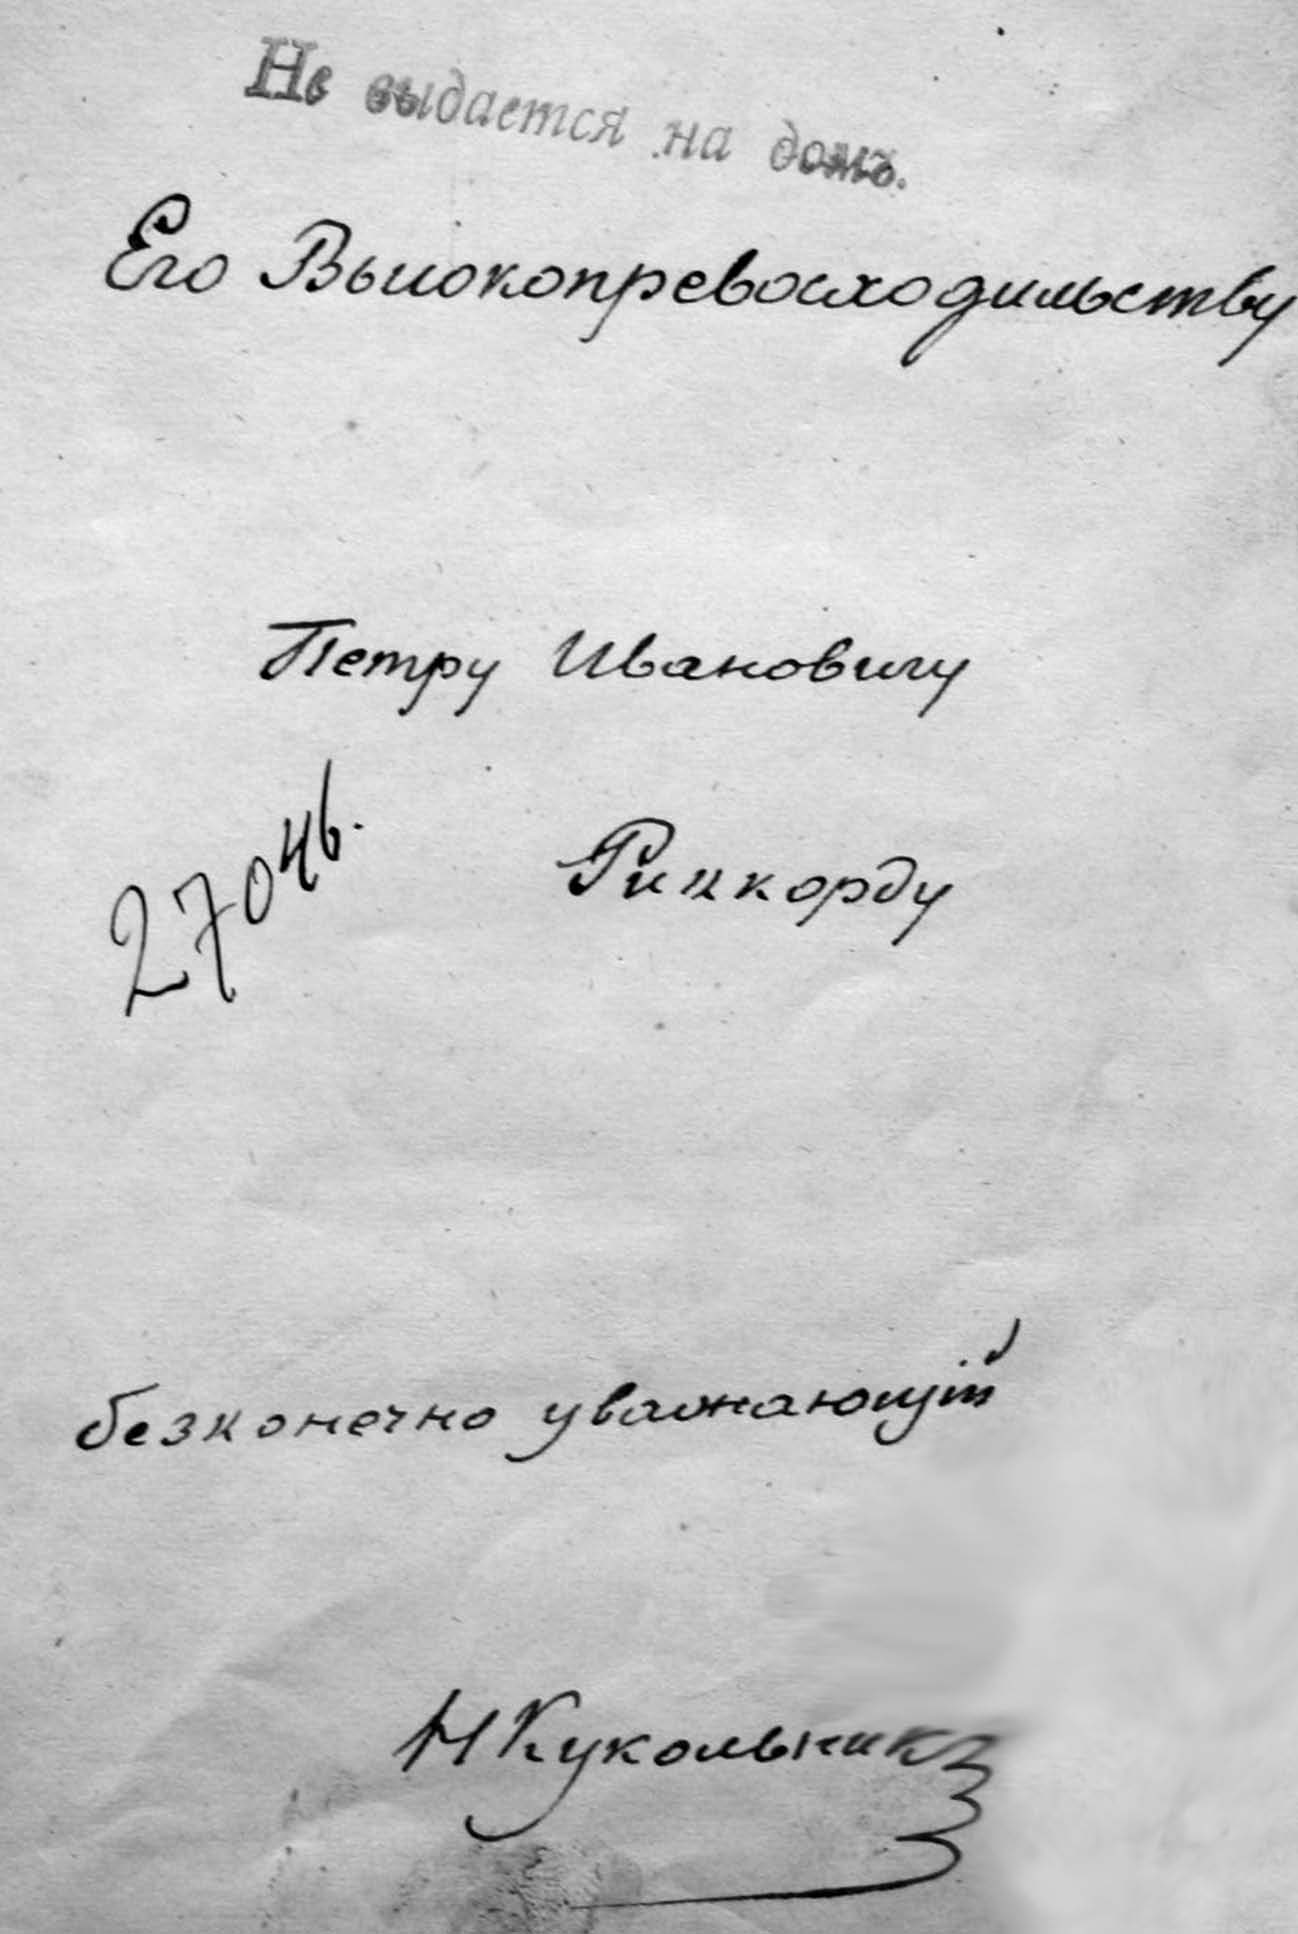 Не выдается на домъ.
Его Высокопревосходительству
Петру Ивановичу
27046.
Рикорду
безконечно уважающій
НКукольникъ